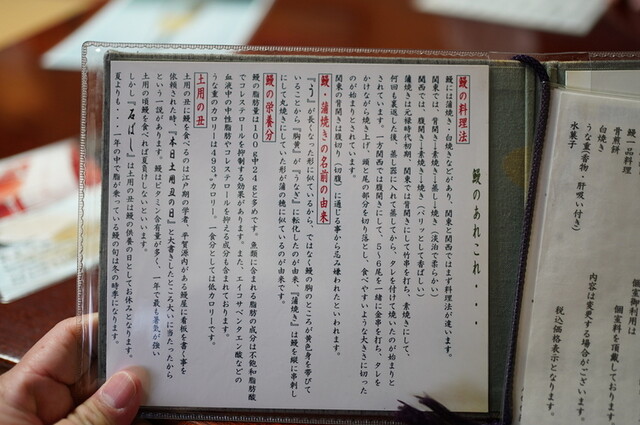 鰻のあれこれ・・・
鰻の料理法
鰻には蒲焼き・白焼きなどがあり、関東と関西ではまた料理法が違います。
関東では、背開き→素焼き→蒸し→焼き(淡泊で柔らかい)
関西では、腹開き→素焼き→焼き(パリッとして香ばしい)
蒲焼きは元禄時代初期、関東では背開きにして竹串を打ち、素焼きにして、
何回も裏返した後、蒸し器に入れて蒸してから、タレを付けて焼いたのが始まりと
されています。一方関西では腹開きにして、5〜6尾を一緒に金串を打ち、タレを
かけながら焼き上げ、頭と尾の部分を切り落とし、食べやすいような大きさに切った
のが始まりとされています。
関東の背開きは腹切り(切腹)に通じる事から忌み嫌われたといわれます。
鰻・蒲焼きの名前の由来
『う』が長くなった形に似ているから、ではなく鰻の胸のところが黄色身を帯びて
いることから『胸黄』が『うなぎ』に転化したのが由来、『蒲焼き』は鰻を縦に串刺し
にして丸焼きにしていた形が蒲の穂に似ているのが由来です。
鰻の栄養分
鰻の脂肪量は100g中24gと多めです。魚類に含まれる脂肪の成分は不飽和脂肪酸
でコレステロールを抑制する効果があります。また、エイコサペンタエン酸などの
血液中の中性脂肪やコレステロールを抑える成分も含まれております。
うな重のカロリーは493㌔カロリー。一食分としては低カロリーです。
土用の丑
土用の丑に鰻を食べるのは江戸期の学者、平賀源内がある鰻屋に看板を書く事を
依頼された時、『本日土用丑の日』と大書きしたところ大いに当たったから
という一説があります。鰻はビタミン含有量が多く、一年で最も暑気が強い
土用の頃鰻を食べれば夏負けしないといいます。
しかし『石ばし』は土用の丑は鰻の供養の日としてお休みとなります。
夏よりも・・・一年の中で脂が乗っている鰻の旬は冬の時季になります。
個室利用は
個室料を頂戴しております。
内容は変更する場合がございます。
税込価格表示となります。
鰻一品料理
骨煎餅
白焼き
うな重(香物・肝吸い付き)
水菓子